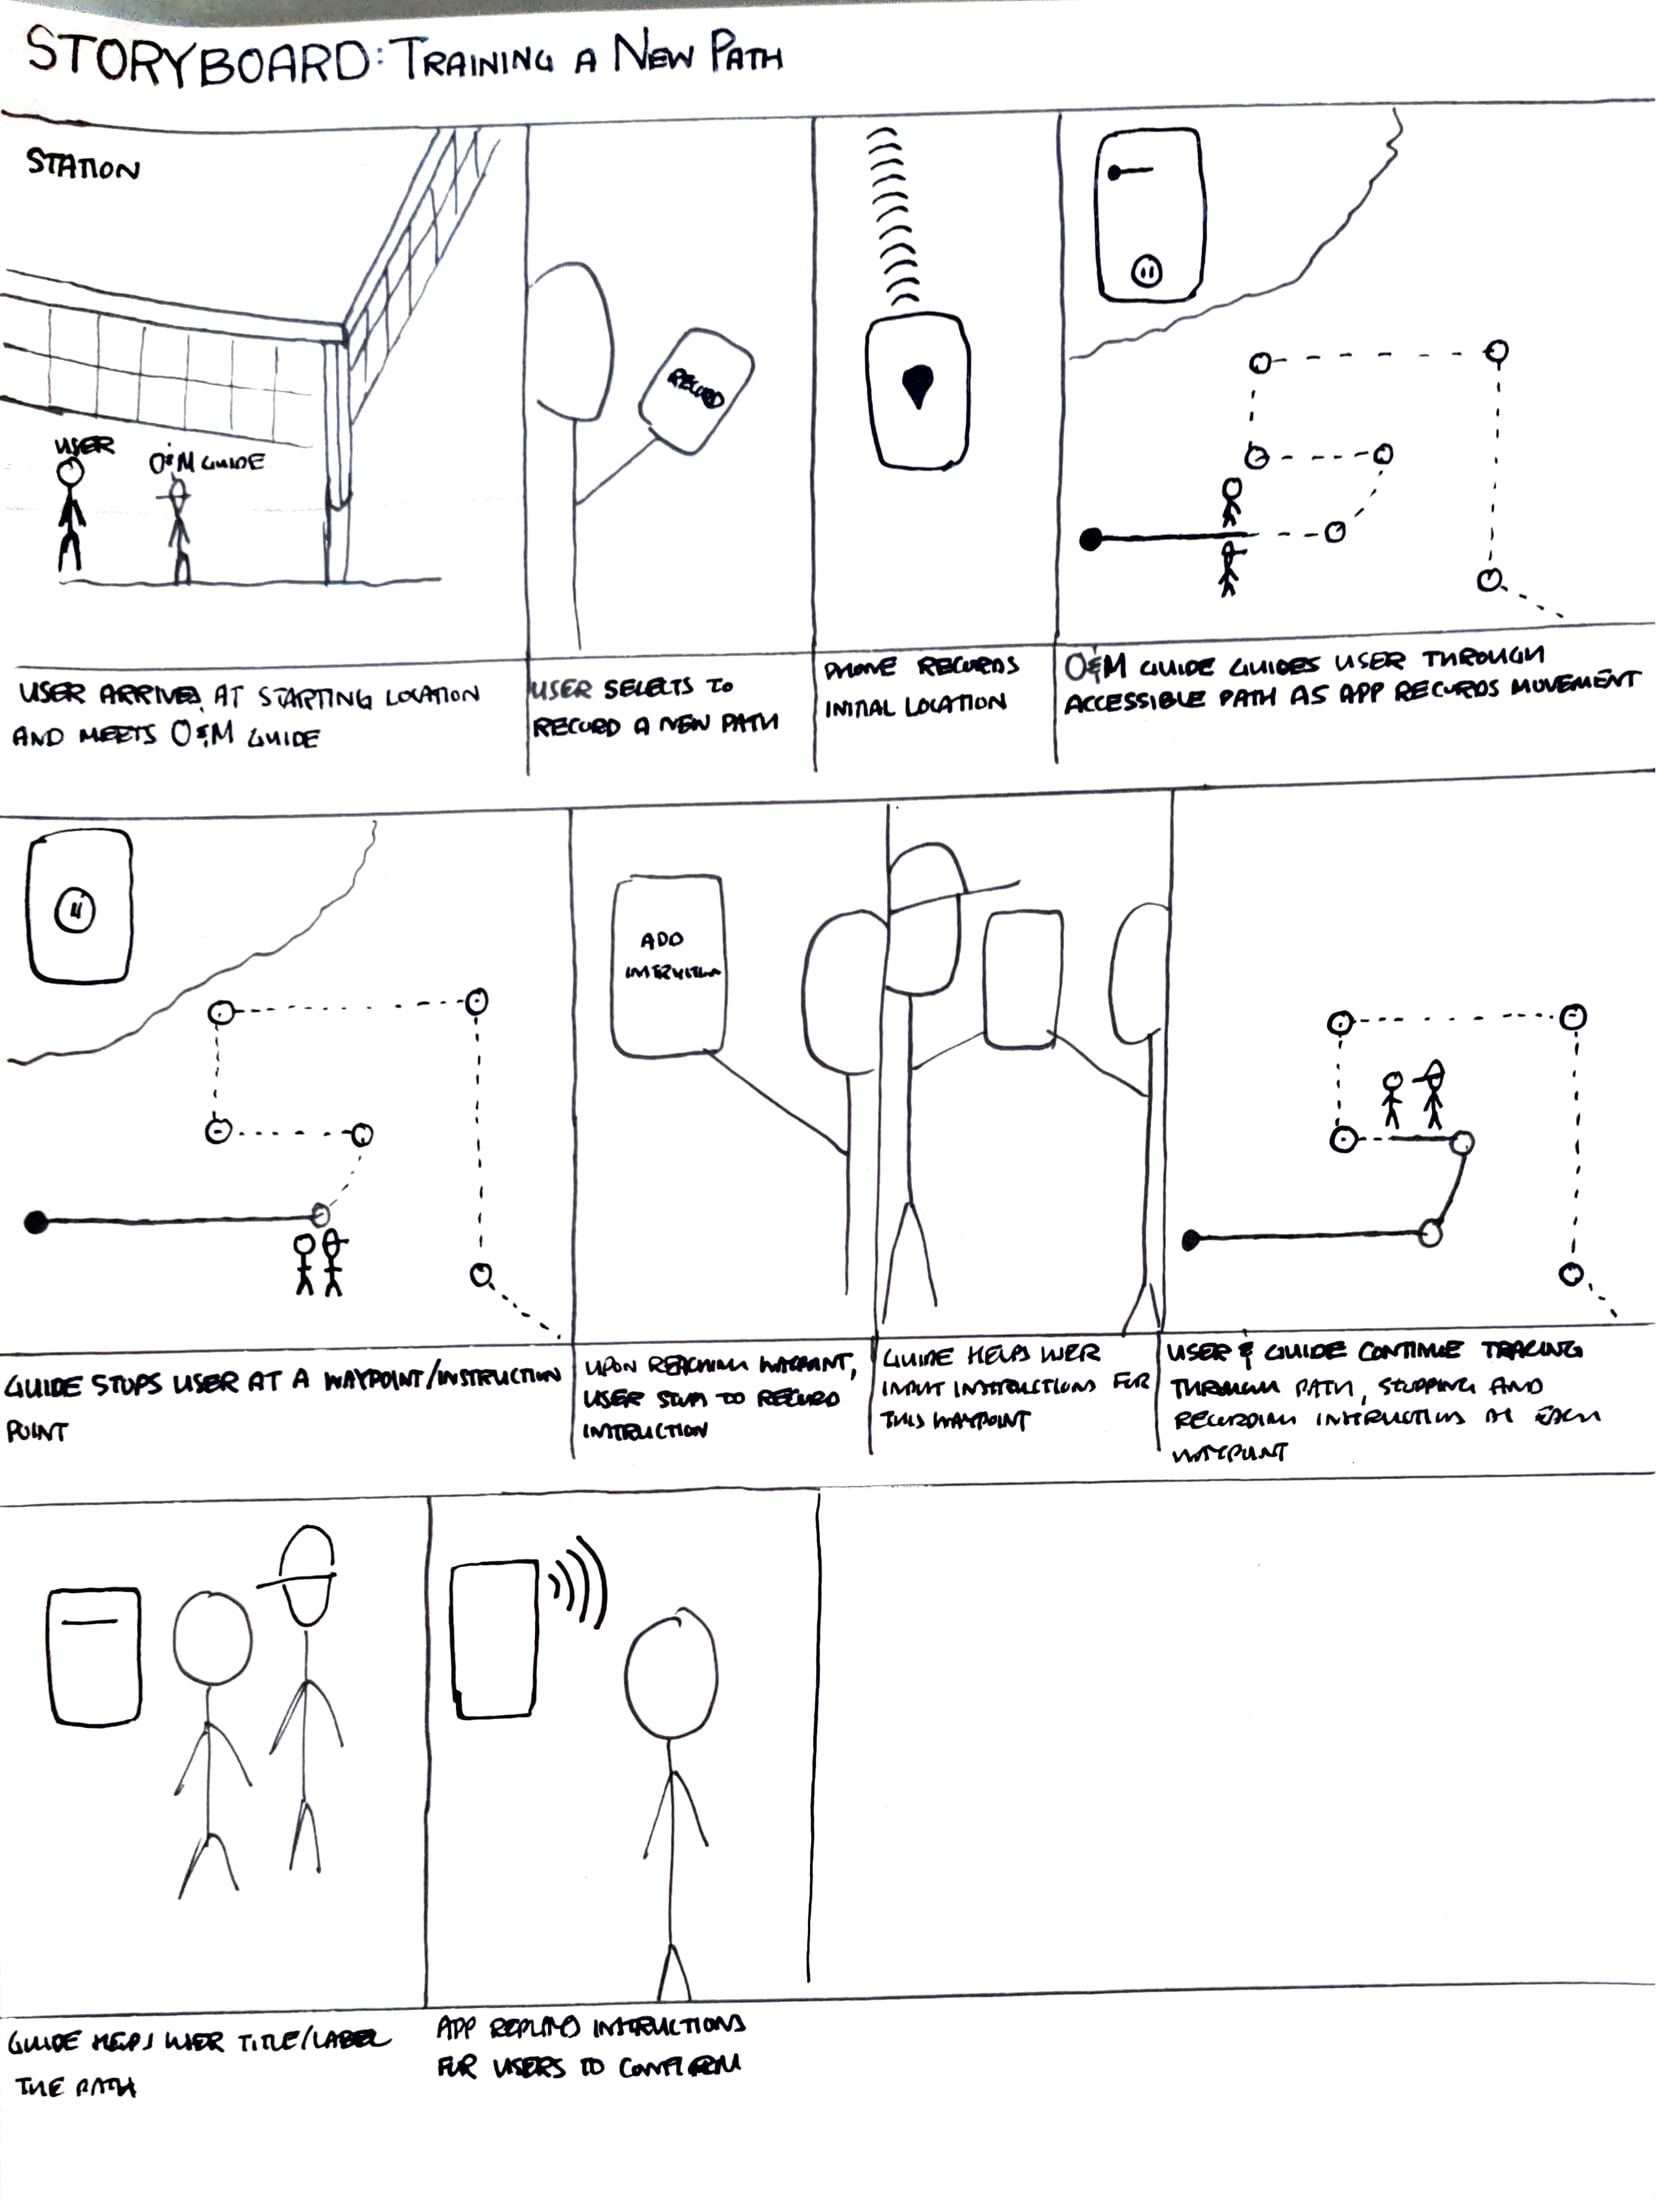 STORYBOARD: TRAINING A NEW PATH
STATION
USER
O&M GUIDE
RECORD
USER ARRIVES AT STARTING LOCATION
AND MEETS O&M GUIDE
USER SELECTS TO
RECORD A NEW PATH
PHONE RECORDS
INITIAL LOCATION
O&M GUIDE GUIDES USER THROUGH
ACCESSIBLE PATH AS APP RECORDS MOVEMENT
ADD
INSTRUCTION
GUIDE STOPS USER AT A WAYPOINT/INSTRUCTION
POINT
UPON REACHING WAYPOINT,
USER STOPS TO RECORD
INSTRUCTION
GUIDE HELPS USER
INPUT INSTRUCTIONS FOR
THIS WAYPOINT
USER & GUIDE CONTINUE TRACING
THROUGH PATH, STOPPING AND
RECORDING INSTRUCTIONS AT EACH
WAYPOINT
GUIDE HELPS USER TITLE/LABEL
THE PATH
APP REPLAYS INSTRUCTIONS
FOR USERS TO CONFIRM